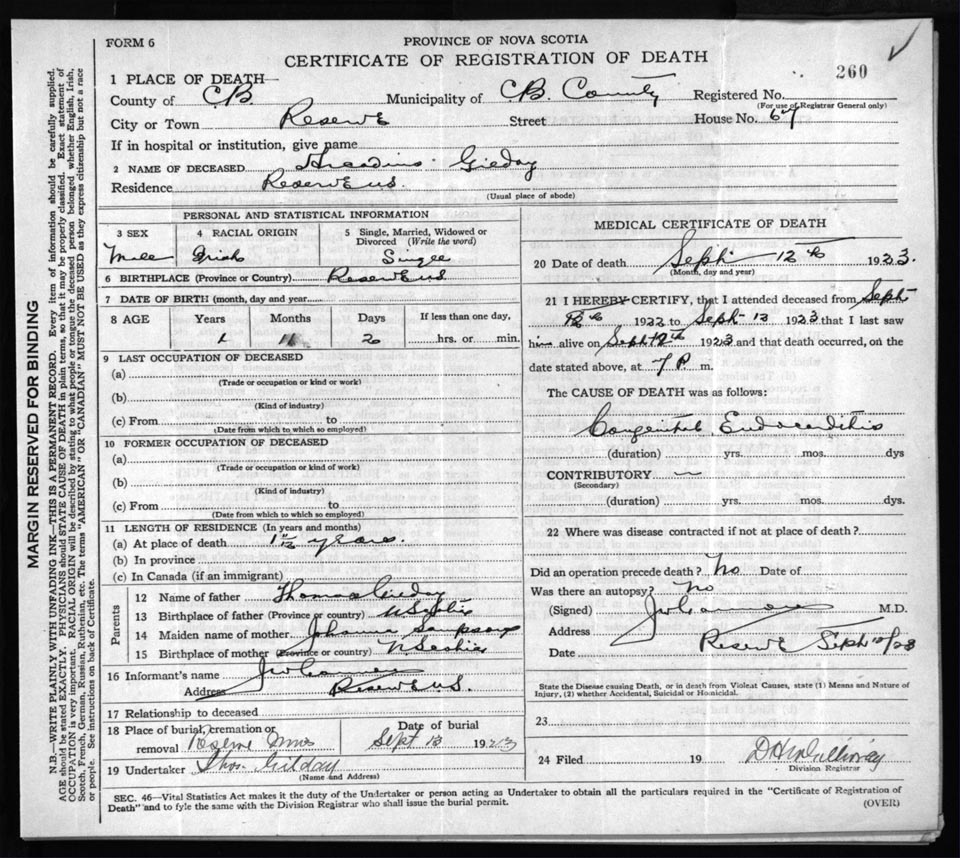 FORM 6
PROVINCE OF NOVA SCOTIA
CERTIFICATE OF REGISTRATION OF DEATH
260
1 PLACE OF DEATH—
County of C.B. Municipality of C.B. County Registered No.
(For use of Registrar General only)
City or Town Reserve Street House No. 67
If in hospital or institution, give name
2 NAME OF DECEASED Gilday
Residence Reserve
(Usual place of abode)
PERSONAL AND STATISTICAL INFORMATION
3 SEX 4 RACIAL ORIGIN 5 Single, Married, Widowed or Divorced (Write the word)
Male Irish Single
6 BIRTHPLACE (Province or Country) Reserve
7 DATE OF BIRTH (month, day and year)
8 AGE Years Months Days If less than one day,
1 11 20 hrs. or min.
9 LAST OCCUPATION OF DECEASED
(a)
(Trade or occupation or kind or work)
(b)
(Kind of industry)
(c) From to
(Date from which to which so employed)
10 FORMER OCCUPATION OF DECEASED
(a)
(Trade or occupation or kind of work)
(b)
(Kind of industry)
(c) From to
(Date from which to which so employed)
11 LENGTH OF RESIDENCE (In years and months)
(a) At place of death years.
(b) In province
(c) In Canada (if an immigrant)
Parents
12 Name of father Thomas Gilday
13 Birthplace of father (Province or country) N Scotia
14 Maiden name of mother Sampson
15 Birthplace of mother (Province or country) N Scotia
16 Informant's name
Address Reserve
17 Relationship to deceased
18 Place of burial, cremation or removal Reserve Mines
Date of burial Sept 13 1923
19 Undertaker Thos. Gilday
(Name and Address)
MEDICAL CERTIFICATE OF DEATH
20 Date of death Sept. 12th 1923.
(Month, day and year)
21 I HEREBY CERTIFY, that I attended deceased from Sept
12th 1922 to Sept 12 1923 that I last saw
him alive on Sept 12th 1923 and that death occurred, on the
date stated above, at 7 P. m.
The CAUSE OF DEATH was as follows:
Congenital Endocarditis
(duration) yrs. mos. dys
CONTRIBUTORY —
(Secondary)
(duration) yrs. mos. dys.
22 Where was disease contracted if not at place of death?
Did an operation precede death? No Date of
Was there an autopsy? No
(Signed) M.D.
Address
Date Reserve Sept
State the Disease causing Death, or in death from Violent Causes, state (1) Means and Nature of Injury, (2) whether Accidental, Suicidal or Homicidal.
23
24 Filed 19
Division Registrar
SEC. 46—Vital Statistics Act makes it the duty of the Undertaker or person acting as Undertaker to obtain all the particulars required in the "Certificate of Registration of
Death" and to fyle the same with the Division Registrar who shall issue the burial permit.
(OVER)
MARGIN RESERVED FOR BINDING
N.B.—WRITE PLAINLY WITH UNFADING INK—THIS IS A PERMANENT RECORD. Every item of information should be carefully supplied.
AGE should be stated EXACTLY. PHYSICIANS should STATE CAUSE OF DEATH in plain terms, so that it may be properly classified. Exact statement of
OCCUPATION is very important. RACIAL ORIGIN will be described by stating to what people or tongue the deceased person belonged whether English, Irish,
Scotch, French, German, Russian, Ruthenian, etc. The terms "AMERICAN" OR "CANADIAN" MUST NOT BE USED as they express citizenship but not a race
or people. See instructions on back of Certificate.